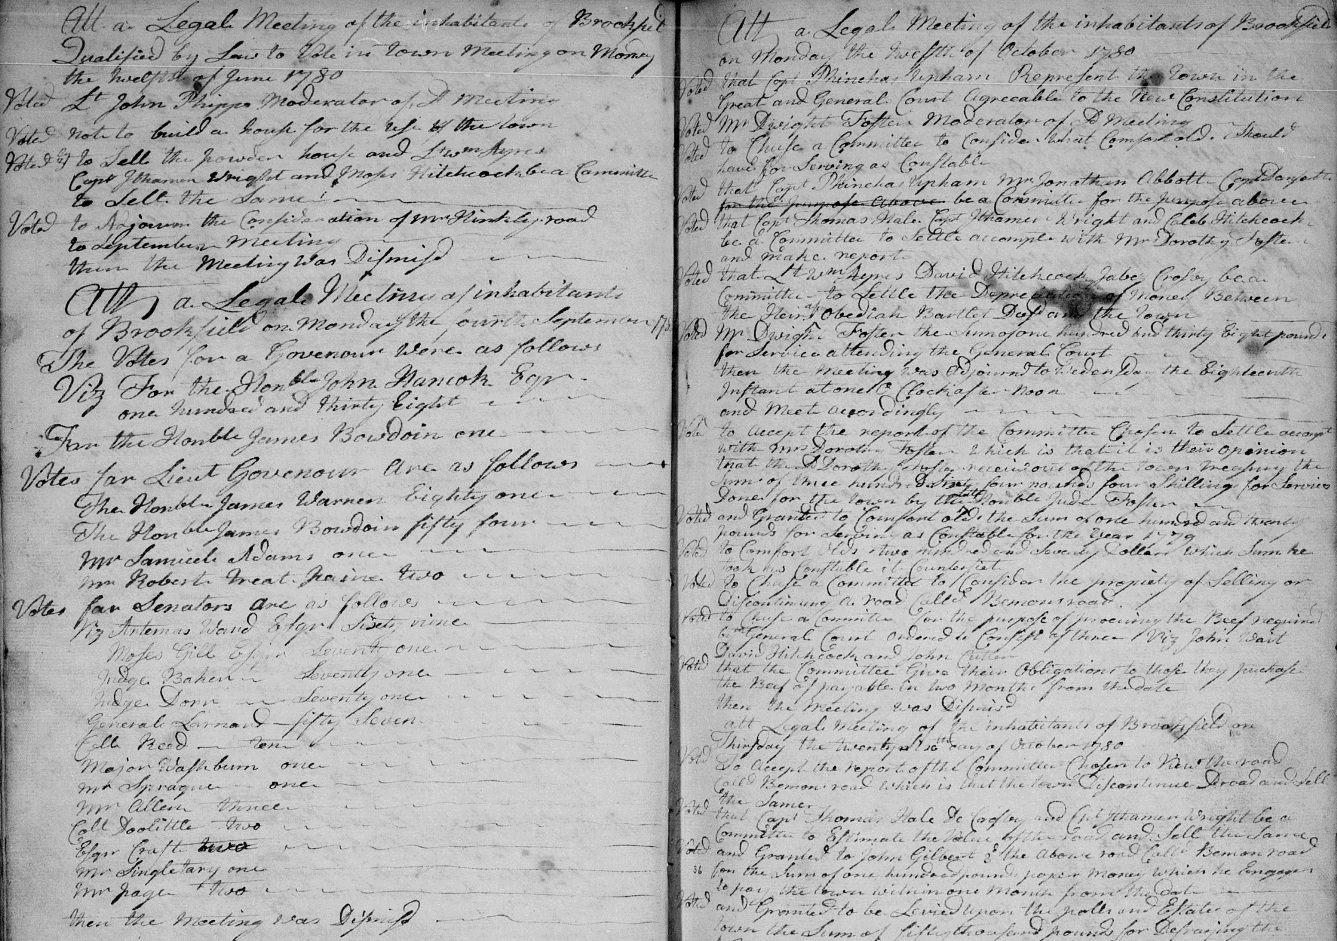 Att a Legal Meeting of the inhabitants of Brookfiel
Qualified by Law to Vote in Town Meeting on Monday
the twelfth of June 1780
Voted Lt John Phipps Moderator of sd Meeting
Voted not to build a house for the use of the town
Voted to Sell the powder house and Lt Wm Ayres
Capt Ithamer Wright and Moses Hitchcock be a Committee
to Sell the Same
Voted to Adjourn the Consideration of Mr Hinkley road
to September Meeting
then the Meeting Was Dismisd
Att a Legal Meeting of inhabitants
of Brookfield on Monday the fourth September 178
The Votes for a Govenour Were as follows
Viz For the Honble John Hancok Eqr
one hundred and thirty Eight
For the Honble James Bowdoin one
Votes for Lieut Govenour are as follows
The Honble James Warren Eighty one
The Honble James Bowdoin fifty four
Mr Samuel Adams one
Mr Robert Treat paine two
Votes for Senators are as follows
Viz Artemas Ward Esqr Sixty nine
Moses Gill Esqr Seventy one
Judge Baker Seventy one
Judge Dorr Seventy one
General Larnard fifty Seven
Coll Reed ten
Major Washburn one
Mr Sprague one
Mr Allen three
Coll Doolittle two
Esqr Craft two
Mr Singletary one
Mr page two
then the Meeting was Dismisd
Att a Legal Meeting of the inhabitants of Brookfield
on Monday the twelfth of October 1780
Voted that Capt Phinehas Upham Represent the Town in the
Great and General Court Agreeable to the New Constitution
Voted Mr Dwight Foster Moderator of sd Meeting
Voted to Chuse a Committee to Consider What Comfort olds Should
have for Serving as Constable
Voted that Capt Phinehas Upham Mr Jonathan Abbott Capt
for the purpose above be a Committee for the purpose above
Voted that Capt Thomas Hale Capt Ithamer Wright and Caleb Hitchcock
be a Committee to Settle accompts with Mrs Dorothy Foster
and make report
Voted that Lt Wm Ayres David Hitchcock Jabez Crosby be a
Committee to Settle the Depreciation of Money Between
the Heirs Obediah Bartlet Decd and the town
Voted Mr Dwight Foster the Sum of one hundred and thirty Eight pounds
for Service attending the General Court
then the Meeting was Adjournd to Weden Day the Eighteenth
Instant at one Clock after noon
and Meet accordingly
Voted to accept the report of the Committee Chosen to Settle accompt
with Mrs Dorothy Foster Which is that it is their opinion
that the sd Dorothy Foster receive out of the town treasury the
Sum of three hundred four pounds four Shillings for Services
Done for the town by the late Honble Jude Foster
Voted and Granted to Comfort olds the Sum of one hundred and twenty
pounds for Serving as Constable for the year 1779
Voted to Comfort olds two hundred and Seventy Dollars Which Sum he
took as Constable it Counterfit
Voted to Chuse a Committee to Consider the propiety of Selling or
Discontinuing a road Calld Bemons road
Voted to Chuse a Committee for the purpose of procuring the Beef required
by General Court ordered to Consist of three Viz John Wait
David Hitchcock and John
Voted that the Committee Give their Obligations to those they purchase
the Beef of payable in two Months from the date
then the Meeting was Dismisd
att Legal Meeting of the inhabitants of Brookfield on
Thirsday the twenty day of October 1780
Voted To Accept the report of the Committee Chosen to View the road
Calld Bemon road which is that the town Discontinue sd road and Sell
the Same
Voted that Capt Thomas Hale and Capt Ithamer Wright be a
Committee to Estimate the Value of the road and Sell the Same
Voted and Granted to John Gilbert the above road Calld Bemon road
for the Sum of one hundred pounds paper Money which he Engages
to pay the town within one Month from the date
Voted and Granted to be Levied upon the polls and Estates of the
town the Sum of fifty thousand pounds for Defraying the